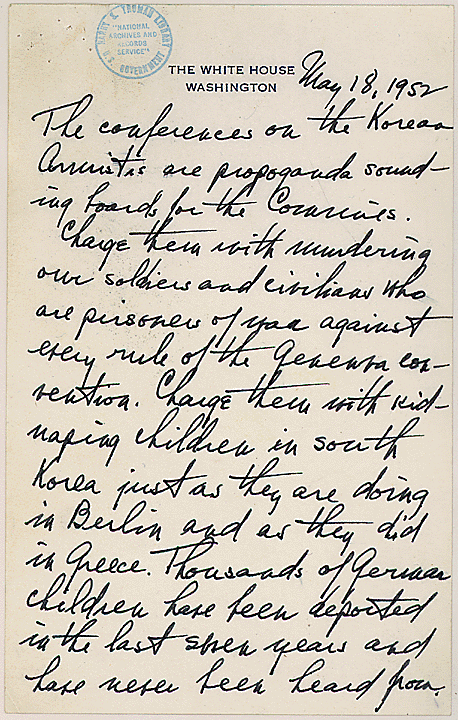 HARRY S. TRUMAN LIBRARY
"NATIONAL
ARCHIVES AND
RECORDS
SERVICE"
U.S. GOVERNMENT
THE WHITE HOUSE
WASHINGTON
May 18, 1952
The conferences on the Korean
Armistis are propoganda sound-
ing boards for the Commies.
Charge them with murdering
our soldiers and civilians who
are pirsoners of war against
every rule of the Genenva con-
vention. Charge them with kid-
naping children in south
Korea just as they are doing
in Berlin and as they did
in Greece. Thousands of German
children have been deported
in the last seven years and
have never been heard from.